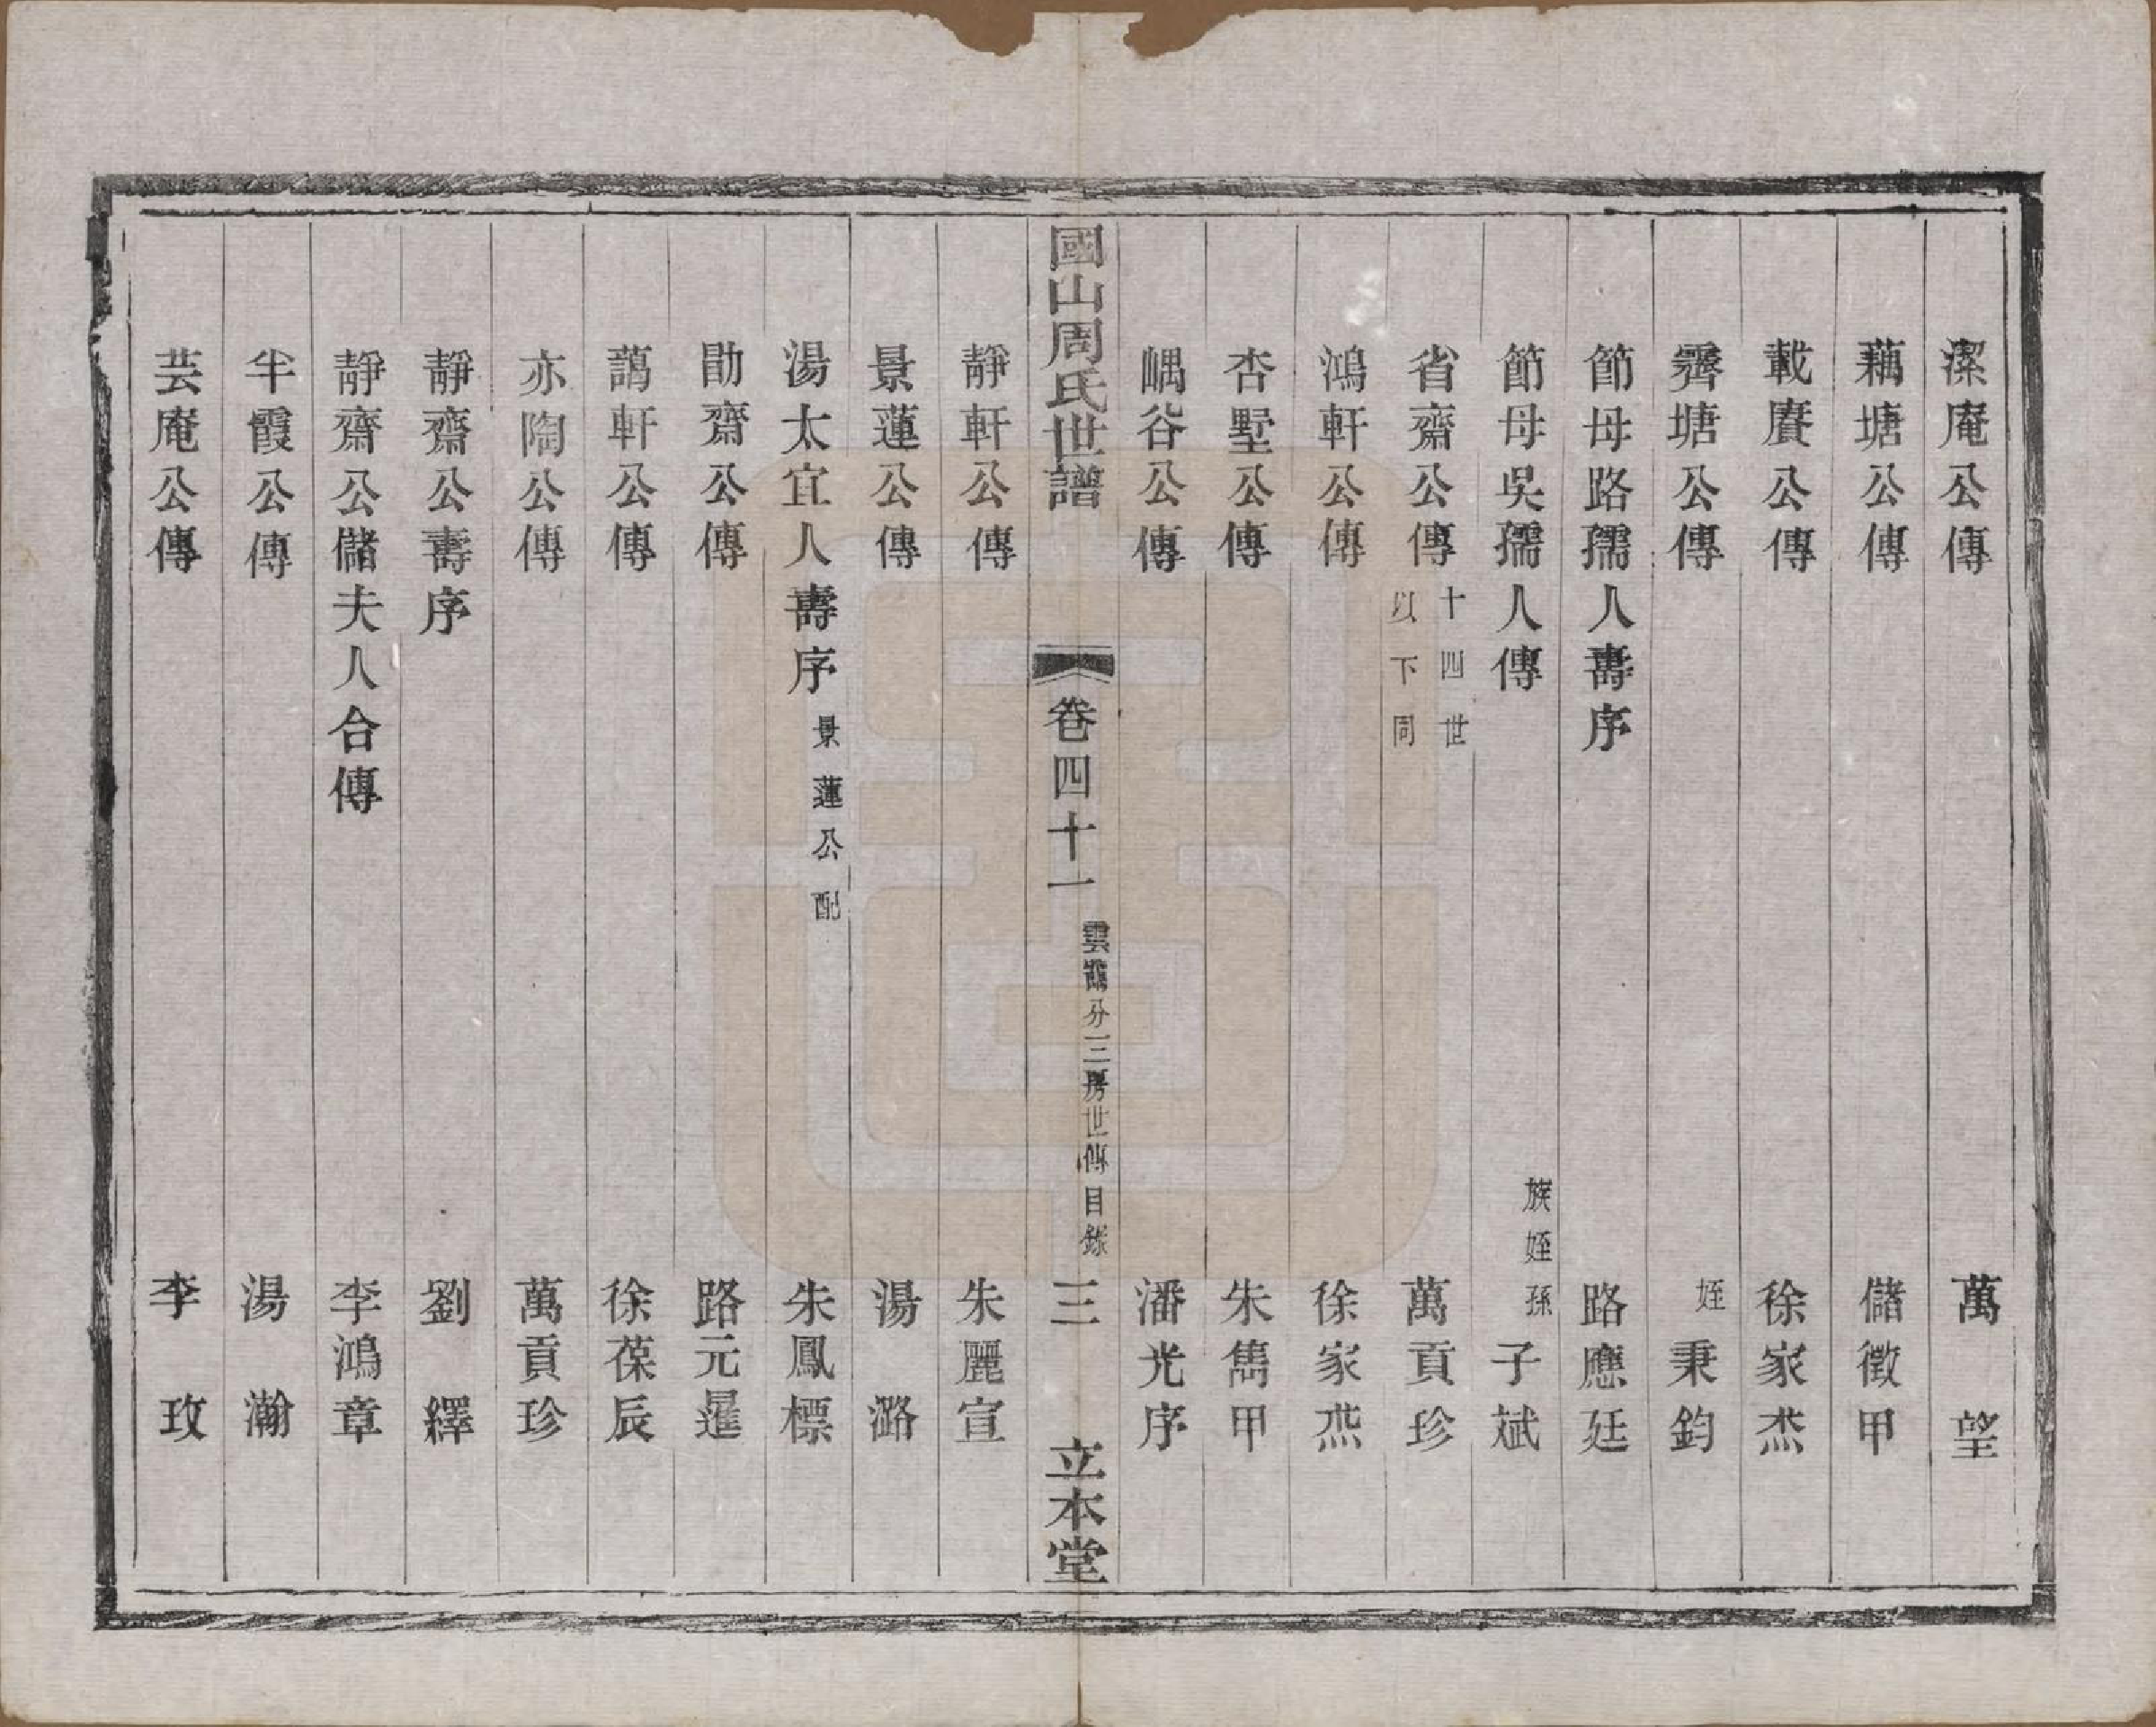 潔庵公傳　萬望
藕塘公傳　儲徵甲
載賡公傳　徐家杰
霽塘公傳　姪秉鈞
節母路孺人壽序　路應廷
節母吳孺人傳　族姪孫子斌
省齋公傳　十四世以下同　萬貢珍
鴻軒公傳　徐家杰
杏墅公傳　朱雋甲
嵎谷公傳　潘光序
國山周氏世譜　卷四十一　雲霱分三房世傳目錄　三　立本堂
靜軒公傳　朱麗宣
景蓮公傳　湯潞
湯太宜人壽序　景蓮公配　朱鳳標
勖齋公傳　路元暹
藹軒公傳　徐葆辰
亦陶公傳　萬貢珍
靜齋公壽序　劉繹
靜齋公儲夫人合傳　李鴻章
半霞公傳　湯瀚
芸庵公傳　李玫